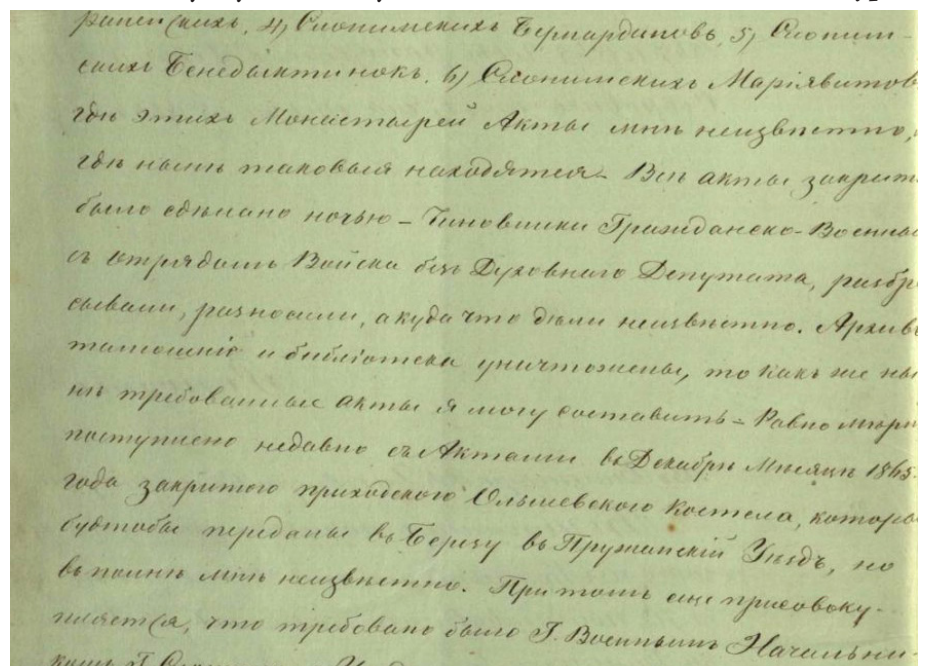 раненскихъ, 4) Слонимскихъ Бернардиновъ 5) Слоним-
скихъ Бенедыктинокъ. 6) Слонимскихъ Маріявитовъ
гдѣ этихъ Монастырей Акты мнѣ неизвѣстно,
гдѣ нынѣ таковыя находятся – Всѣ акты закрыт
было сдѣлано ночью – Чиновники Гражданско-Воен
съ отрядомъ Войска безъ Духовнаго Депутата, разбр
сывали, разносили, а куда что дѣли неизвѣстно. Архивъ
тамошніе и библіотека уничтожены, то какъ же ны
нѣ требованные акты я могу составить – Равно
поступлено недавно съ Актами въ Декабрѣ Мѣсяцѣ 1865
года закрытого приходского Ольшевского Костела, которы
будтобы переданы въ Березу въ Пружанскій Уѣздъ, но
въ полнѣ мнѣ неизвѣстно. При томъ еще присовоку-
пляется, что требовано было Г. Военнымъ Начальни-
комъ